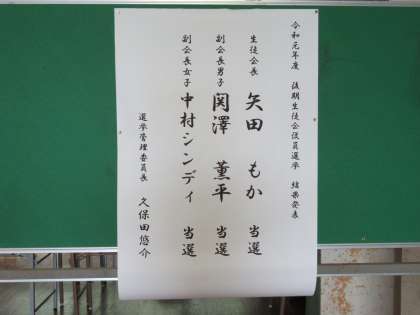 令和元年度 後期生徒会役員選挙 結果発表
生徒会長 矢田 もか 当選
副会長男子 関澤 薫平 当選
副会長女子 中村シンディ 当選
選挙管理委員長 久保田悠介